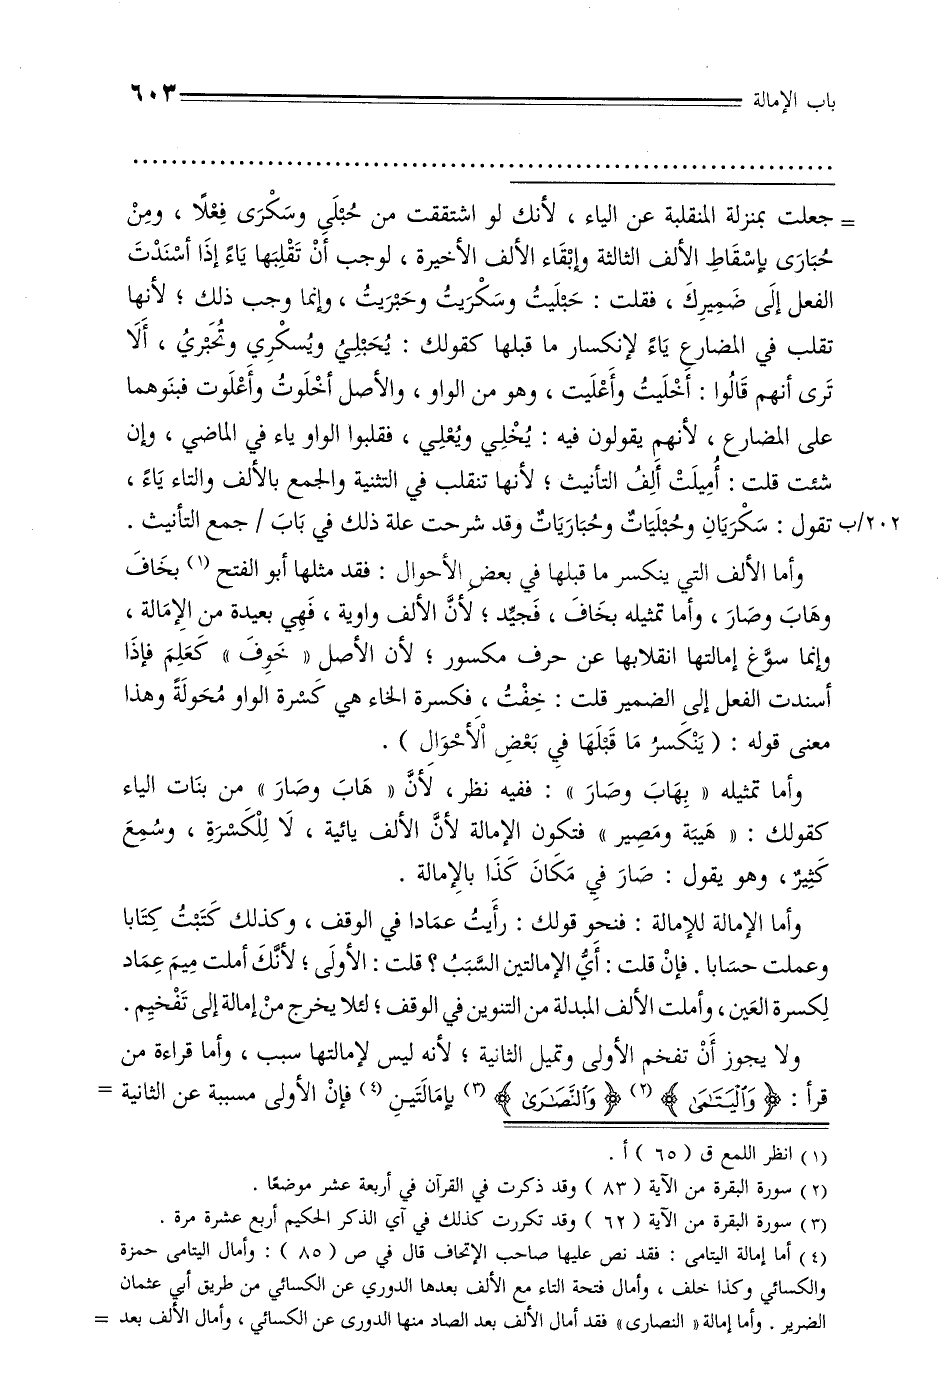 باب الإمالة ٦٠٣
= جعلت بمنزلة المنقلبة عن الياء ، لأنك لو اشتققت من حُبْلَى وسَكْرَى فِعْلًا ، ومِنْ
حُبَارَى بإسْقَاطِ الألف الثالثة وإبْقَاء الألف الأخيرة ، لوجب أنْ تَقْلِبَها يَاءً إذَا أسْنَدْتَ
الفعل إلَى ضَمِيرِكَ ، فقلت : حَبْلَيتُ وسَكْرَيتُ وحَبْرَيتُ ، وإنما وجب ذلك ؛ لأنها
تقلب في المضارع يَاءً لإنكسار ما قبلها كقولك : يُحَبْلِيُ ويُسكْرِي وتُحَبْريُ ، ألَا
تَرى أنهم قَالُوا : أَخْلَيتُ وأَعْلَيت ، وهو من الواو ، والأصل أخْلَوتُ وأَعْلَوت فبنَوهما
على المضارع ، لأنهم يقولون فيه : يُخْلِي ويُعْلِي ، فقلبوا الواو ياء في الماضي ، وإن
شئت قلت : أُمِيلَتْ ألِفُ التأنيث ؛ لأنها تنقلب في التثنية والجمع بالألف والتاء يَاءً ،
٢٠٢/ب تقول : سَكْرَيَانِ وحُبْلَيَاتٌ وحُبَارَيَاتٌ وقد شرحت علة ذلك في بَابَ / جمع التأنيث .
وأما الألف التي ينكسر ما قبلها في بعضِ الأحوال : فقد مثلها أبو الفتح (١) بخَافَ
وهَابَ وصَارَ ، وأما تمثيله بخَافَ ، فَجيِّد ؛ لأنَّ الألف واوية ، فَهِي بعيدة من الإمَالة ،
وإنما سوَّغ إمالتها انقلابها عن حرف مكسور ؛ لأن الأصل « خَوِفَ » كَعَلِمَ فإذَا
أسندت الفعل إلى الضمير قلت : خِفْتُ ، فكسرة الخاء هي كَسْرة الواو مُحَولَةً وهذا
معنى قوله : ( يَنْكَسرُ مَا قَبْلَهَا في بَعْضِ الْأَحْوَالِ ) .
وأما تمثيله « بِهَابَ وصَارَ » : ففيه نظر ، لأنَّ « هَابَ وصَارَ » من بنَات الياء
كقولك : « هَيبَة ومَصِير » فتكون الإمالة لأنَّ الألف يائية ، لَا لِلْكَسْرَةِ ، وسُمِعَ
كَثِيرٌ ، وهو يقول : صَارَ في مَكَانَ كَذَا بالإمالة .
وأما الإمالة للإمالة : فنحو قولك : رأَيتُ عمَادا في الوقف ، وكذلك كَتَبْتُ كِتَابا
وعملت حسَابا . فإنْ قلت : أَيُّ الإمالتين السَّبَبُ ؟ قلت : الأولَى ؛ لأنَّكَ أملت مِيمَ عِمَاد
لِكسرة العَين ، وأملت الألف المبدلة من التنوين في الوقف ؛ لئلا يخرج منْ إمالة إلى تَفْخيِم .
ولا يجوز أَنْ تفخم الأولى وتميل الثانية ؛ لأنه ليس لإمالتها سبب ، وأما قراءة من
قرأ : ﴿ وَٱلْيَتَـٰمَىٰ ﴾ (٢) ﴿ وَٱلنَّصَـٰرَىٰ ﴾ (٣) بإمَالَتَينِ (٤) فإنْ الأولى مسببة عن الثانية =
(١) انظر اللمع ق ( ٦٥ ) أ .
(٢) سورة البقرة من الآية ( ٨٣ ) وقد ذكرت في القرآن في أربعة عشر موضعًا .
(٣) سورة البقرة من الآية ( ٦٢ ) وقد تكررت كذلك في آي الذكر الحكيم أربع عشرة مرة .
(٤) أما إمالة اليتامى : فقد نص عليها صاحب الإتحاف قال في ص ( ٨٥ ) : وأمال اليتامى حمزة
والكسائي وكذا خلف ، وأمال فتحة التاء مع الألف بعدها الدوري عن الكسائي من طريق أبي عثمان
الضرير . وأما إمالة « النصارى » فقد أمال الألف بعد الصاد منها الدورى عن الكسائي ، وأمال الألف بعد =